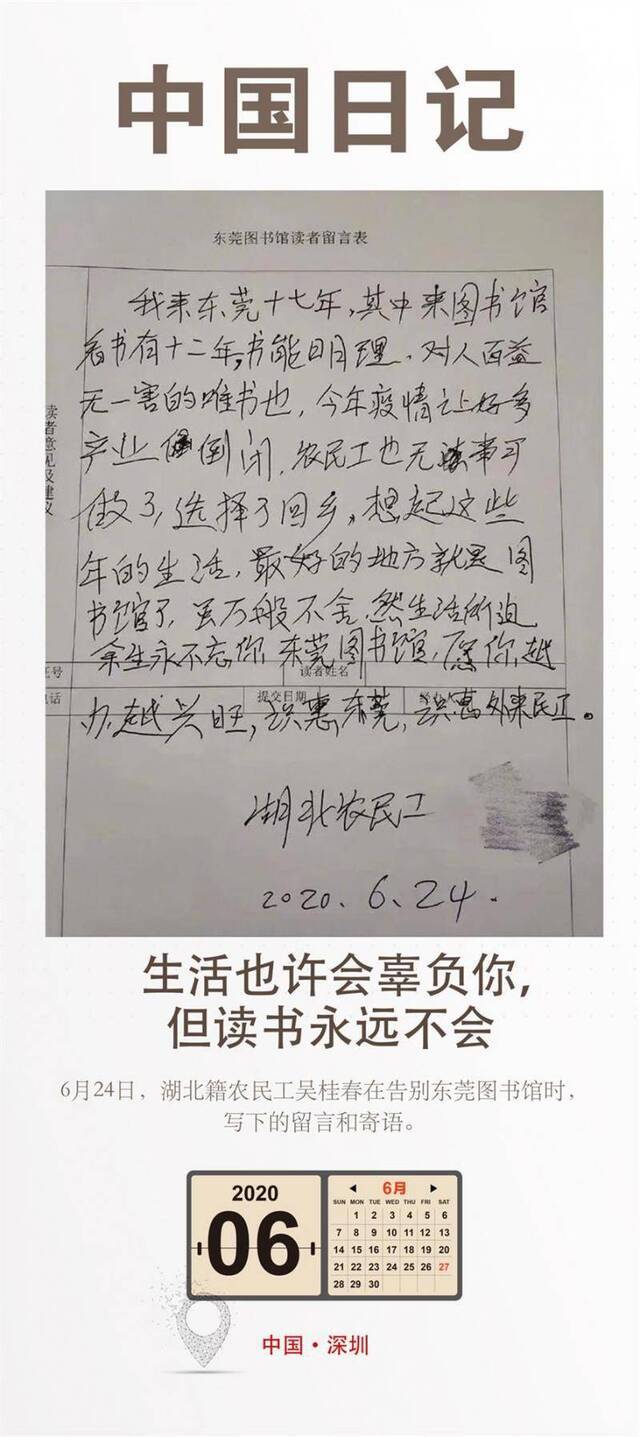 中国日记
东莞图书馆读者留言表
我来东莞十七年，其中来图书馆
看书有十二年，书能明理，对人百益
无一害的唯书也，今年疫情让好多
产业倒闭，农民工也无事可
做了，选择了回乡，想起这些
年的生活，最好的地方就是图
书馆了，虽万般不舍，然生活所迫，
余生永不忘你，东莞图书馆，愿你越
办越兴旺，识惠东莞，识惠外来民工。
读者意见及建议
证号
读者姓名
电话
提交日期
湖北农民工
2020.6.24.
生活也许会辜负你，
但读书永远不会
6月24日，湖北籍农民工吴桂春在告别东莞图书馆时，
写下的留言和寄语。
2020
06
6月
SUN MON TUE WED THU FRI SAT
1 2 3 4 5 6
7 8 9 10 11 12 13
14 15 16 17 18 19 20
21 22 23 24 25 26 27
28 29 30
中国·深圳